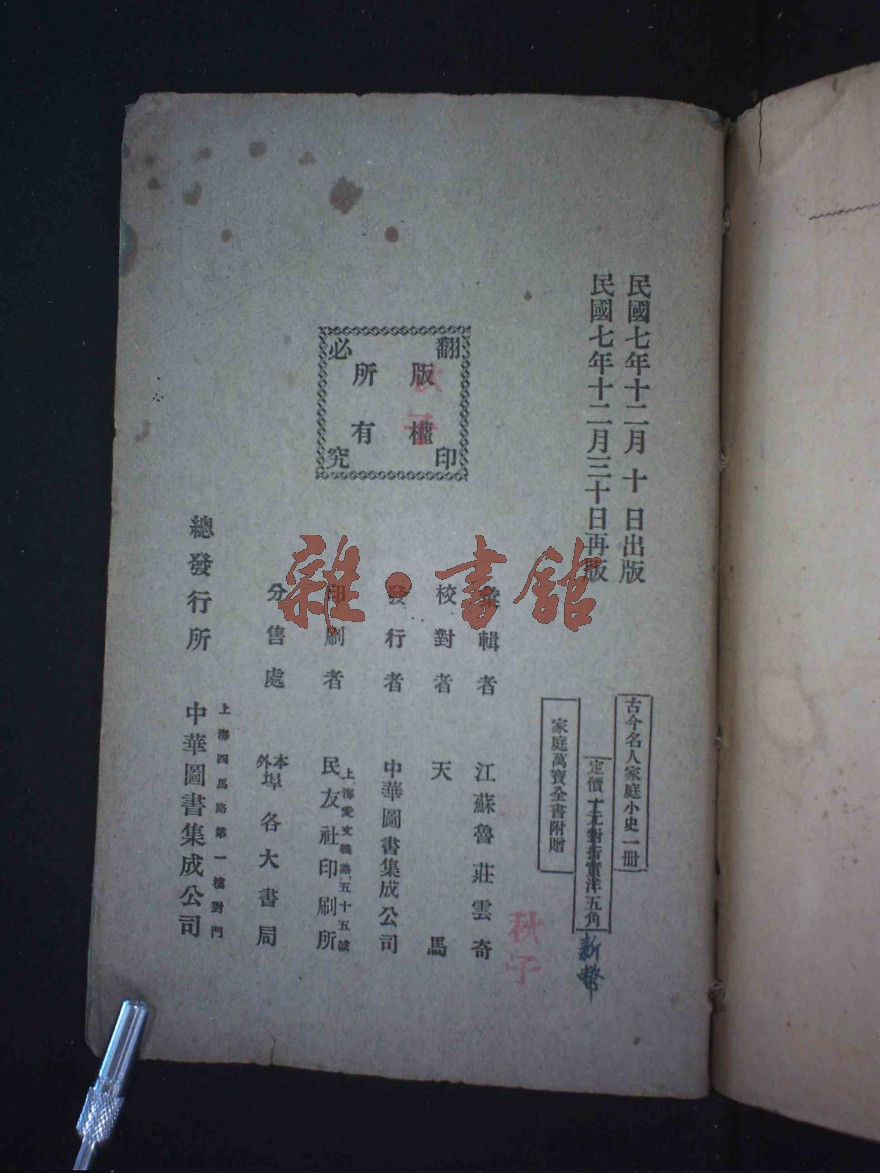 民國七年十二月十日出版
民國七年十二月三十日再版
古今名人家庭小史一冊
定價一元對折實洋五角
新幣
家庭萬寶全書附贈
翻印必究
版權所有
秋子
彙輯者 江蘇魯莊雲奇
秋子
校對者 天馬
發行者 中華圖書集成公司
印刷者 上海愛文義路五十五號
民友社印刷所
分售處 本外埠各大書局
總發行所 上海四馬路第一樓對門
中華圖書集成公司
雜·書館